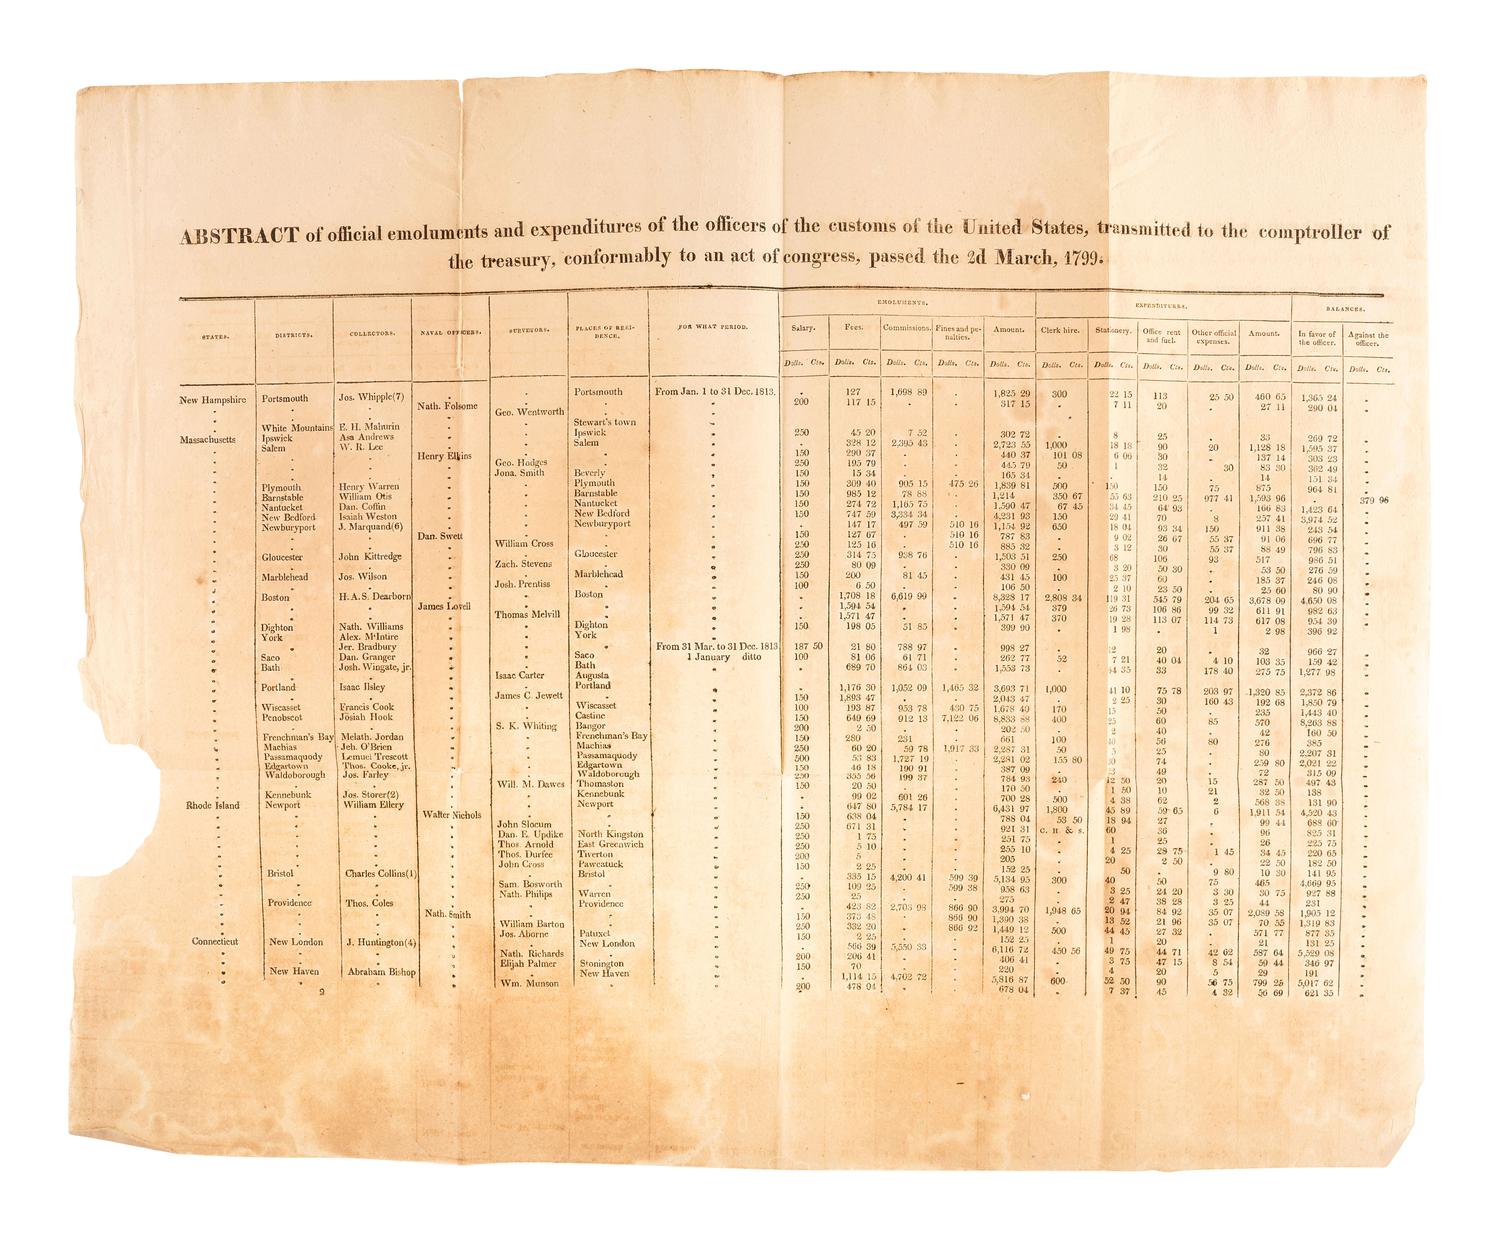 ABSTRACT of official emoluments and expenditures of the officers of the customs of the United States, transmitted to the comptroller of
the treasury, conformably to an act of congress, passed the 2d March, 1799.
EMOLUMENTS. EXPENDITURES. BALANCES.
STATES. DISTRICTS. COLLECTORS. NAVAL OFFICERS. SURVEYORS. PLACES OF RESI-DENCE. FOR WHAT PERIOD. Salary. Fees. Commissions. Fines and pe-nalties. Amount. Clerk hire. Stationery. Office rent and fuel. Other official expenses. Amount. In favor of the officer. Against the officer.
Dolls. Cts. Dolls. Cts. Dolls. Cts. Dolls. Cts. Dolls. Cts. Dolls. Cts. Dolls. Cts. Dolls. Cts. Dolls. Cts. Dolls. Cts. Dolls. Cts. Dolls. Cts.
New Hampshire Portsmouth Jos. Whipple(7) Portsmouth From Jan. 1 to 31 Dec. 1813. 127 1,698 89 1,825 29 300 22 15 113 25 50 460 65 1,365 24
Nath. Folsome 200 117 15 317 15 7 11 20 27 11 290 04
Geo. Wentworth
White Mountains E. H. Mahurin Stewart's town
Massachusetts Ipswich Asa Andrews Ipswich 250 45 20 7 52 302 72 8 25 33 269 72
Salem W. R. Lee Salem 328 12 2,395 43 2,723 55 1,000 18 18 90 20 1,128 18 1,595 37
Henry Elkins 150 290 37 440 37 101 08 6 06 30 137 14 303 23
Geo. Hodges 250 195 79 445 79 50 1 32 30 83 30 362 49
Jona. Smith Beverly 150 15 34 165 34 14 14 151 34
Plymouth Henry Warren Plymouth 150 309 40 905 15 475 26 1,839 81 500 150 150 75 875 964 81
Barnstable William Otis Barnstable 150 985 12 78 88 1,214 350 67 55 63 210 25 977 41 1,593 96 379 96
Nantucket Dan. Coffin Nantucket 150 274 72 1,165 75 1,590 47 67 45 34 45 64 93 166 83 1,423 64
New Bedford Isaiah Weston New Bedford 150 747 59 3,334 34 4,231 93 150 29 41 70 8 257 41 3,974 52
Newburyport J. Marquand(6) Newburyport 147 17 497 59 510 16 1,154 92 650 18 04 93 34 150 911 38 243 54
Dan. Swett 150 127 67 510 16 787 83 9 02 26 67 55 37 91 06 696 77
William Cross 250 125 16 510 16 885 32 3 12 30 55 37 88 49 796 83
Gloucester John Kittredge Gloucester 250 314 75 938 76 1,503 51 250 68 106 93 517 986 51
Zach. Stevens 250 80 09 330 09 3 20 50 30 53 50 276 59
Marblehead Jos. Wilson Marblehead 150 200 81 45 431 45 100 25 37 60 185 37 246 08
Josh. Prentiss 100 6 50 106 50 2 10 23 50 25 60 80 90
Boston H. A. S. Dearborn Boston 1,708 18 6,619 99 8,328 17 2,808 34 119 31 545 79 204 65 3,678 09 4,650 08
James Lovell 1,594 54 1,594 54 379 26 73 106 86 99 32 611 91 982 63
Thomas Melvill 1,571 47 1,571 47 370 19 28 113 07 114 73 617 08 954 39
Dighton Nath. Williams Dighton 150 198 05 51 85 399 90 1 98 1 2 98 396 92
York Alex. M'Intire York
Jer. Bradbury From 31 Mar. to 31 Dec. 1813. 187 50 21 80 788 97 998 27 12 20 32 966 27
Saco Dan. Granger Saco 1 January ditto 100 81 06 61 71 262 77 52 7 21 40 04 4 10 103 35 159 42
Bath Josh. Wingate, jr. Bath 689 70 864 03 1,553 73 54 35 33 178 40 275 75 1,277 98
Isaac Carter Augusta
Portland Isaac Ilsley Portland 1,176 30 1,052 09 1,465 32 3,693 71 1,000 41 10 75 78 203 97 1,320 85 2,372 86
James C. Jewett 150 1,893 47 2,043 47 2 25 30 160 43 192 68 1,850 79
Wiscasset Francis Cook Wiscasset 100 193 87 953 78 430 75 1,678 40 170 15 50 235 1,443 40
Penobscot Josiah Hook Castine 150 649 69 912 13 7,122 06 8,833 88 400 25 60 85 570 8,263 88
S. K. Whiting Bangor 200 2 50 202 50 2 40 42 160 50
Frenchman's Bay Melath. Jordan Frenchman's Bay 150 280 231 661 100 40 56 80 276 385
Machias Jeh. O'Brien Machias 250 60 20 59 78 1,917 33 2,287 31 50 5 25 80 2,207 31
Passamaquody Lemuel Trescott Passamaquody 500 53 83 1,727 19 2,281 02 155 80 30 74 259 80 2,021 22
Edgartown Thos. Cooke, jr. Edgartown 150 46 18 190 91 387 09 23 49 72 315 09
Waldoborough Jos. Farley Waldoborough 250 355 56 199 37 784 93 240 12 50 20 15 287 50 497 43
Will. M. Dawes Thomaston 150 20 50 170 50 1 50 10 21 32 50 138
Kennebunk Jos. Storer(2) Kennebunk 99 02 601 26 700 28 500 4 38 62 2 568 38 131 90
Rhode Island Newport William Ellery Newport 647 80 5,784 17 6,431 97 1,800 45 89 59 65 6 1,911 54 4,520 43
Walter Nichols 150 638 04 788 04 53 50 18 94 27 99 44 688 60
John Slocum 250 671 31 921 31 C. H. & S. 60 36 96 825 31
Dan. E. Updike North Kingston 250 1 75 251 75 1 25 26 225 75
Thos. Arnold East Greenwich 250 5 10 255 10 4 25 28 75 1 45 34 45 220 65
Thos. Durfee Tiverton 200 5 205 20 2 50 22 50 182 50
John Cross Pawcatuck 150 2 25 152 25 50 9 80 10 30 141 95
Bristol Charles Collins(1) Bristol 335 15 4,200 41 599 39 5,134 95 300 40 50 75 465 4,669 95
Sam. Bosworth 250 109 25 599 38 958 63 3 25 24 20 3 30 30 75 927 88
Nath. Philips Warren 250 25 275 2 47 38 28 3 25 44 231
Providence Thos. Coles Providence 423 82 2,703 98 866 90 3,994 70 1,948 65 20 94 84 92 35 07 2,089 58 1,905 12
Nath. Smith 150 373 48 866 90 1,390 38 13 52 21 96 35 07 70 55 1,319 83
William Barton 250 332 20 866 92 1,449 12 500 44 45 27 32 571 77 877 35
Jos. Aborne Patuxet 150 2 25 152 25 1 20 21 131 25
Connecticut New London J. Huntington(4) New London 566 39 5,550 33 6,116 72 450 56 49 75 44 71 42 62 587 64 5,529 08
Nath. Richards 200 206 41 406 41 3 75 47 15 8 54 59 44 346 97
Elijah Palmer Stonington 150 70 220 4 20 5 29 191
New Haven Abraham Bishop New Haven 1,114 15 4,702 72 5,816 87 600 52 50 90 56 75 799 25 5,017 62
Wm. Munson 200 478 04 678 04 7 37 45 4 32 56 69 621 35
2